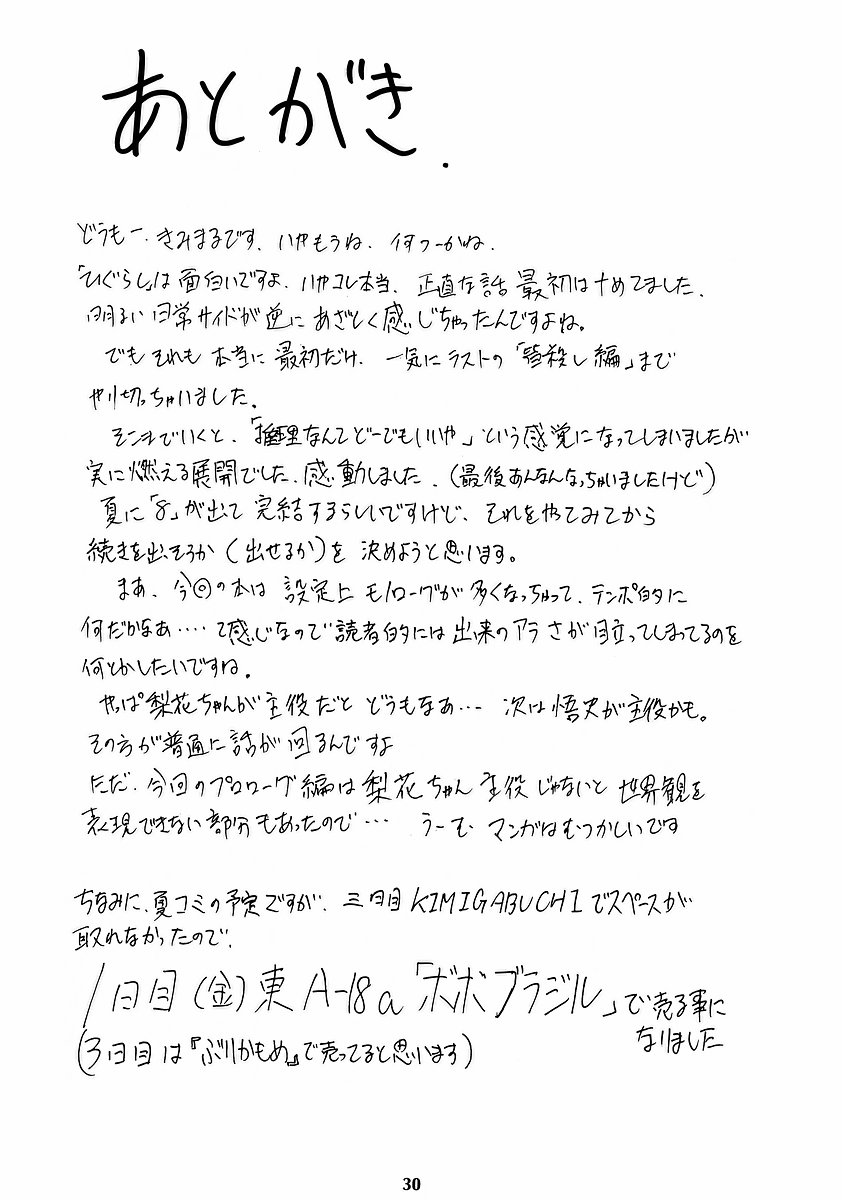 あとがき.
どうもー. きみまるです. いやもうね. 何つーかね.
「ひぐらし」は面白いですよ. いやコレ本当. 正直な話 最初はナめてました.
明るい日常サイドが逆に あざとく感じちゃったんですよね。
でもそれも本当に最初だけ. 一気にラストの「皆殺し編」まで
やり切っちゃいました.
そこまでいくと、「推理なんてどーでもいいや」という感覚になってしまいましたが
実に燃える展開でした. 感動しました. (最後あんなんなっちゃいましたけど)
夏に「8」が出て 完結するらしいですけど、それをやってみてから
続きを出そうか(出せるか)を 決めようと思います。
まあ、今回の本は 設定上 モノローグが多くなっちゃって、テンポ的に
何だかなあ‥‥って感じなので読者的には出来のアラさが目立ってしまってるのを
何とかしたいですね.
やっぱ梨花ちゃんが主役だと どうもなあ… 次は悟史が主役かも。
その方が普通に話が回るんですよ
ただ. 今回のプロローグ編は梨花ちゃん主役じゃないと世界観を
表現できない部分もあったので… うーむ マンガはむつかしいです
ちなみに、夏コミの予定ですが、三日目KIMIGABUCHIでスペースが
取れなかったので、
1日目(金)東A-18a「ボボブラジル」で売る事に
なりました
(3日目は『ぶりかもめ』で売ってると思います)
30